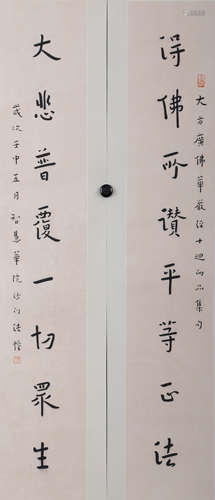 大方廣佛華嚴經十迴向品集句
得佛所讚平等正法
大悲普覆一切眾生
歲次壬申五月智慧華院沙門法愷